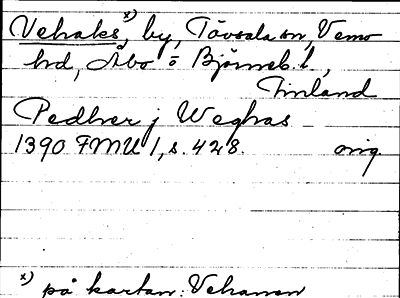 Vehaks, x) by, Tövsala sn, Vemo
hd, Åbo o Bjärneb. l.,
Finland
Pedher j Weghas
1390 FMU 1, s. 428. orig.
x) på kartan: Vehanen